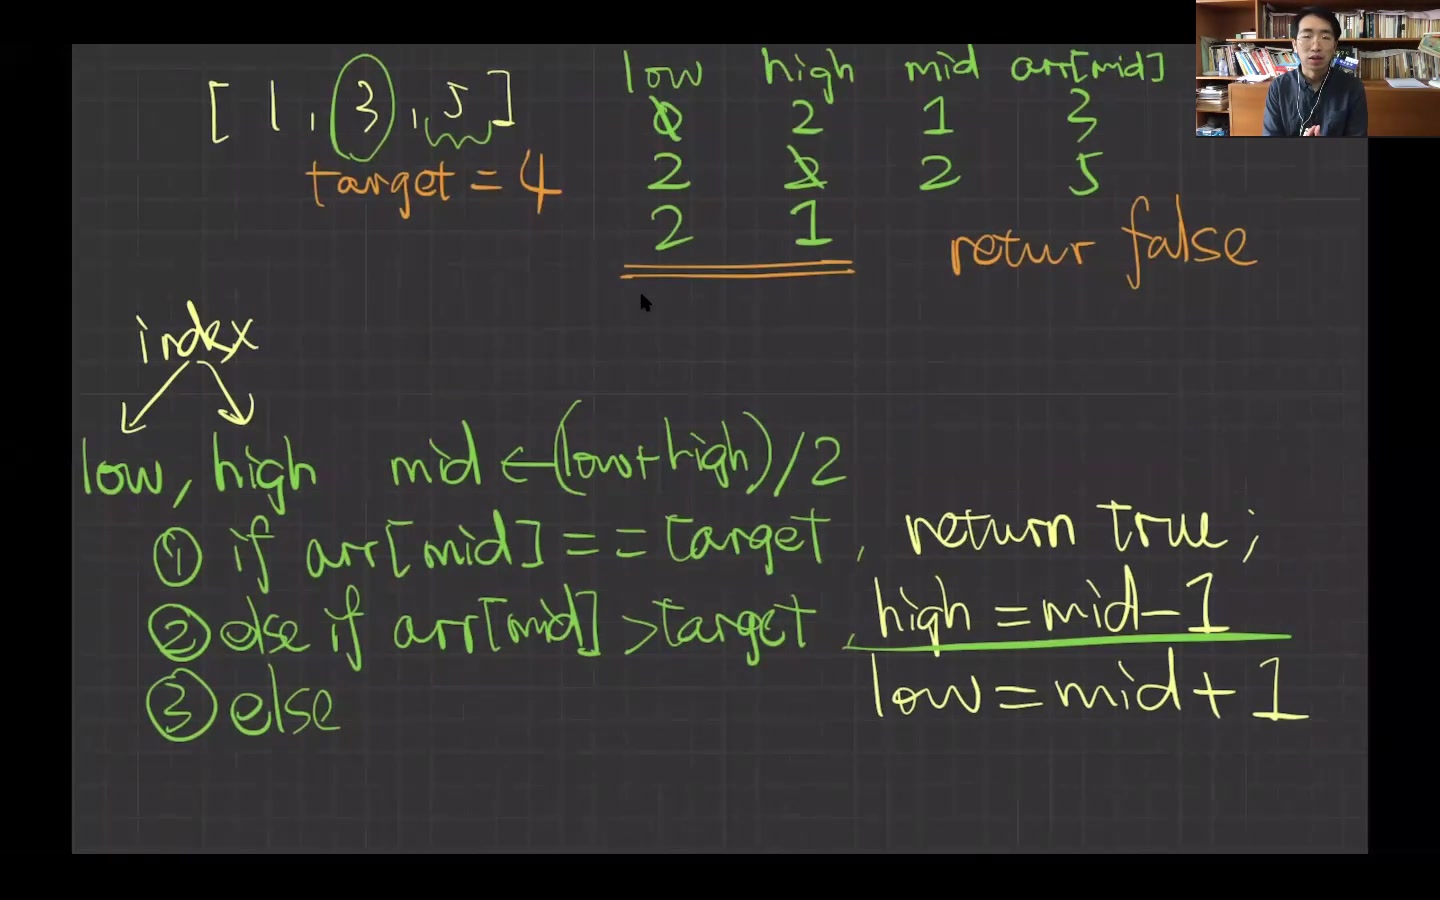 [ 1, 3, 5 ]
target = 4
low high mid arr[mid]
0 2 1 3
2 2 2 5
2 1
retur false
index
low, high mid ← (low+high)/2
① if arr[mid] == target, return true;
② else if arr[mid] > target, high = mid-1
③ else low = mid+1